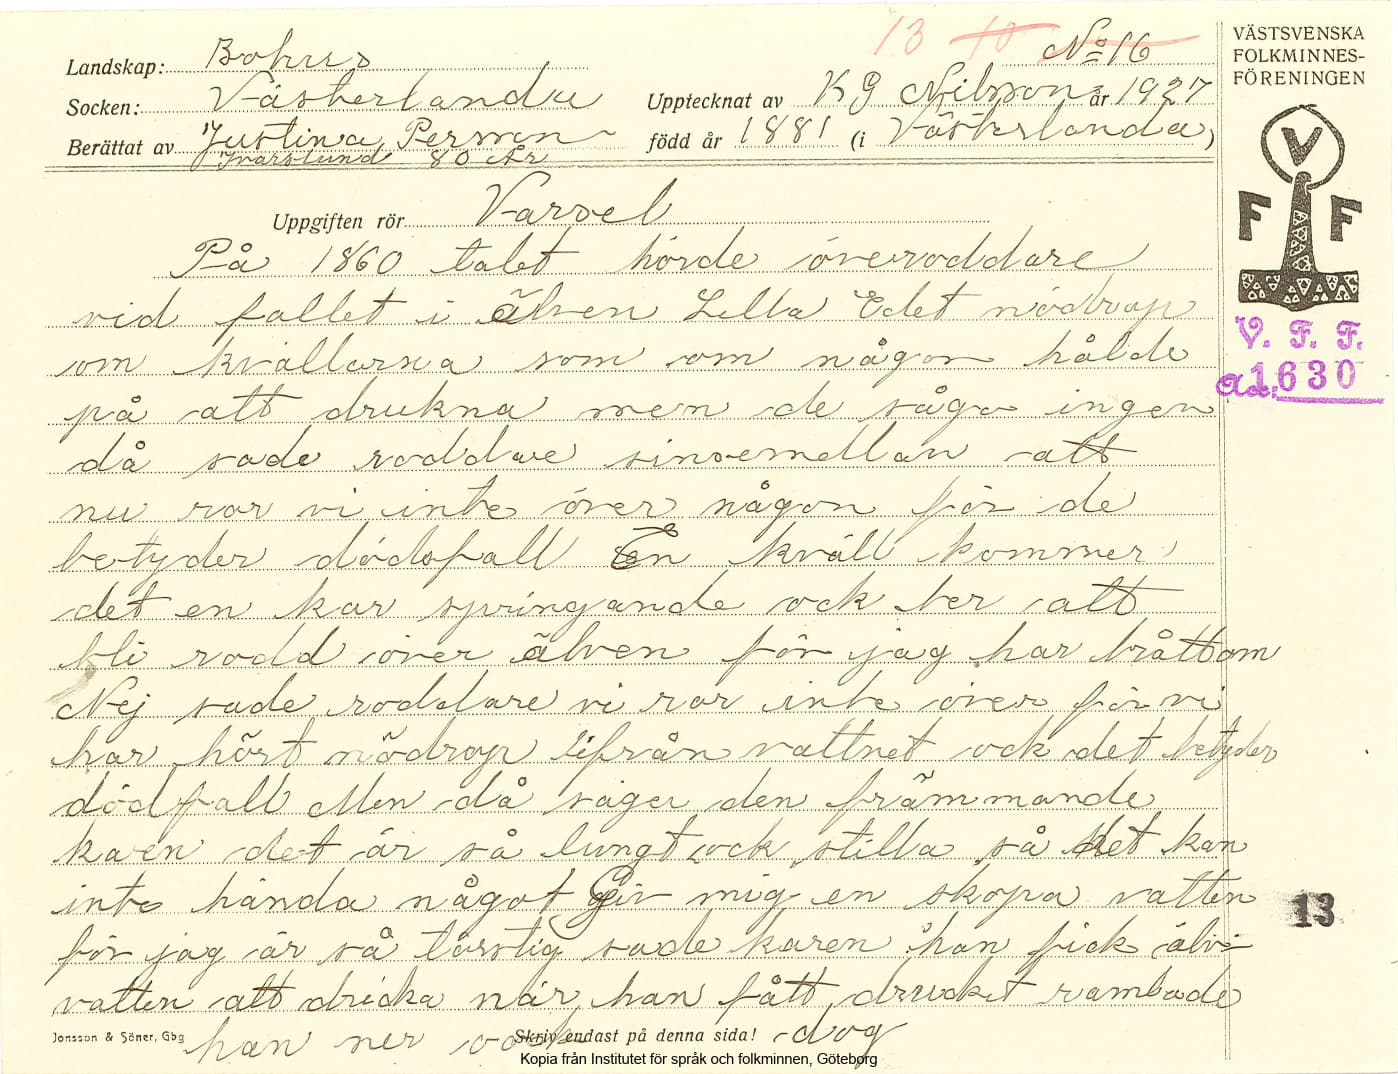 13 10 No 16
Landskap: Bohus
Socken: Västerlanda
Upptecknat av K G Nilsson år 1927
Berättat av Justina Person
född år 1881 (i Västerlanda)
Ivarslund 80 År
VÄSTSVENSKA
FOLKMINNES-
FÖRENINGEN
V
F F
V. F. F.
1630
Uppgiften rör Varsel
På 1860 talet hörde överoddare
vid fallet i älven Lilla Edet nödrop
om kvällarna som om någon hålde
på att drukna men de sågo ingen
då sade roddare sinsemellan att
nu ror vi inte över någon för de
betyder dödsfall En kväll kommer
det en kar springande ock ber att
bli rodd över älven för jag har bråttom
Nej sade roddare vi ror inte över för vi
har hört nödrop ifrån vattnet ock det betyder
dödfall Men då säger den främmande
karen det är så lungt ock stilla så det kan
inte hända något Giv mig en skopa vatten
för jag är så törstig sade karen han fick älv
vatten att dricka när han fått druckit ramlade
han ner ock dog
13
Jonsson & Söner, Gbg
Skriv endast på denna sida!
Kopia från Institutet för språk och folkminnen, Göteborg